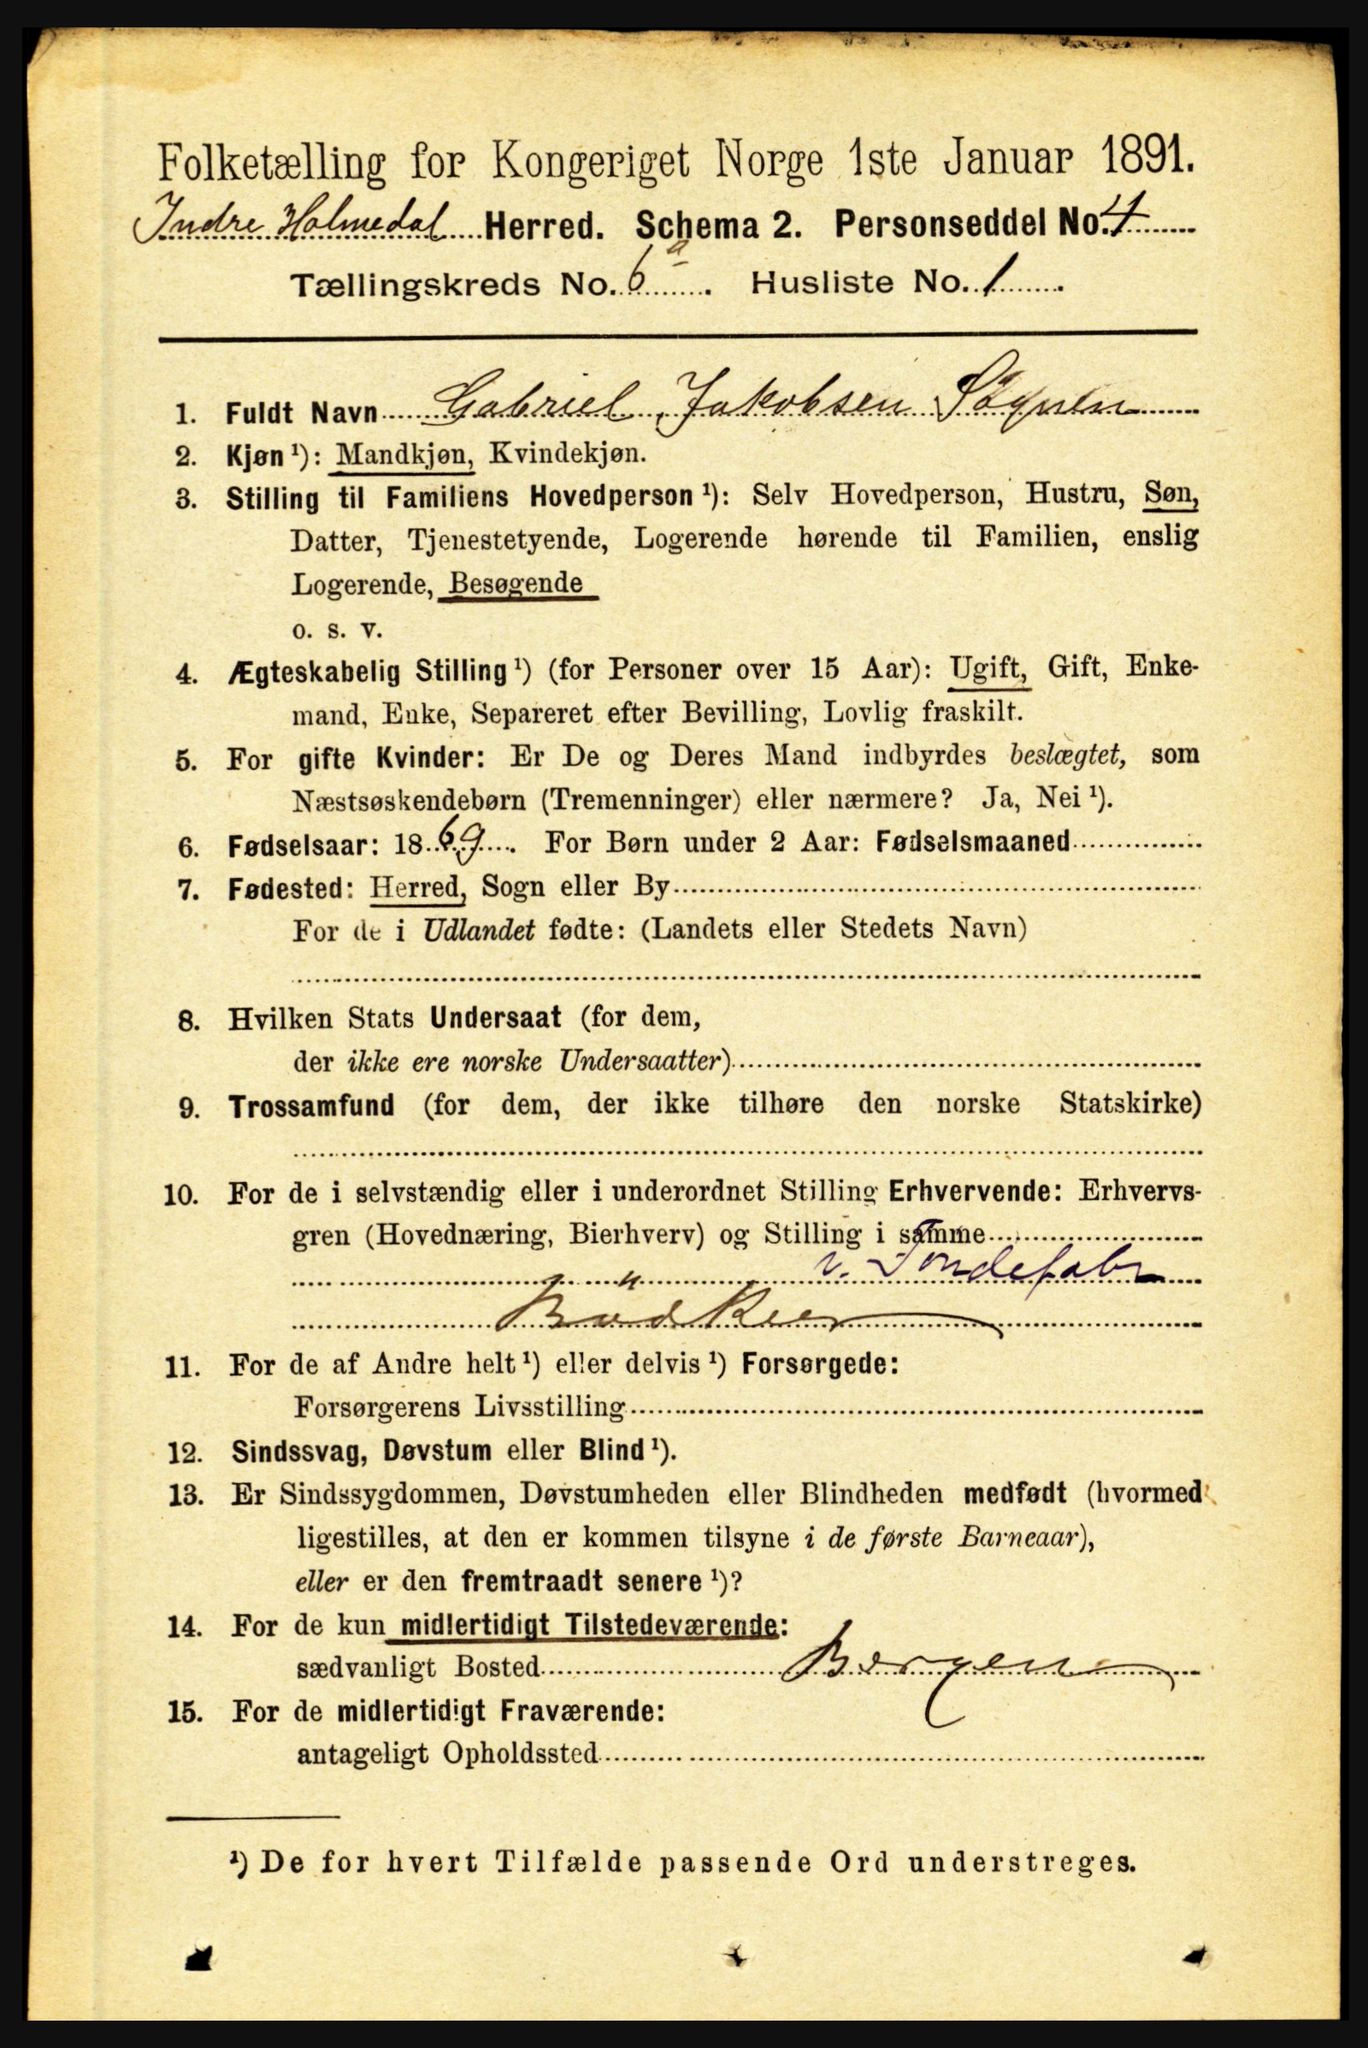 Folketælling for Kongeriget Norge 1ste Januar 1891.
Indre Holmedal Herred. Schema 2. Personseddel No. 4
Tællingskreds No. 6 a. Husliste No. 1.
1. Fuldt Navn Gabriel Jakobsen
2. Kjøn ¹): Mandkjøn, Kvindekjøn.
3. Stilling til Familiens Hovedperson ¹): Selv Hovedperson, Hustru, Søn,
Datter, Tjenestetyende, Logerende hørende til Familien, enslig
Logerende, Besøgende
o. s. v.
4. Ægteskabelig Stilling ¹) (for Personer over 15 Aar): Ugift, Gift, Enke-
mand, Enke, Separeret efter Bevilling, Lovlig fraskilt.
5. For gifte Kvinder: Er De og Deres Mand indbyrdes beslægtet, som
Næstsøskendebørn (Tremenninger) eller nærmere? Ja, Nei ¹).
6. Fødselsaar: 1869. For Børn under 2 Aar: Fødselsmaaned
7. Fødested: Herred, Sogn eller By
For de i Udlandet fødte: (Landets eller Stedets Navn)
8. Hvilken Stats Undersaat (for dem,
der ikke ere norske Undersaatter)
9. Trossamfund (for dem, der ikke tilhøre den norske Statskirke)
10. For de i selvstændig eller i underordnet Stilling Erhvervende: Erhvervs-
gren (Hovednæring, Bierhverv) og Stilling i samme
v. Tøndefabr
Bødker
11. For de af Andre helt ¹) eller delvis ¹) Forsørgede:
Forsørgerens Livsstilling
12. Sindssvag, Døvstum eller Blind ¹).
13. Er Sindssygdommen, Døvstumheden eller Blindheden medfødt (hvormed
ligestilles, at den er kommen tilsyne i de første Barneaar),
eller er den fremtraadt senere ¹)?
14. For de kun midlertidigt Tilstedeværende:
sædvanligt Bosted Bergen
15. For de midlertidigt Fraværende:
antageligt Opholdssted
¹) De for hvert Tilfælde passende Ord understreges.